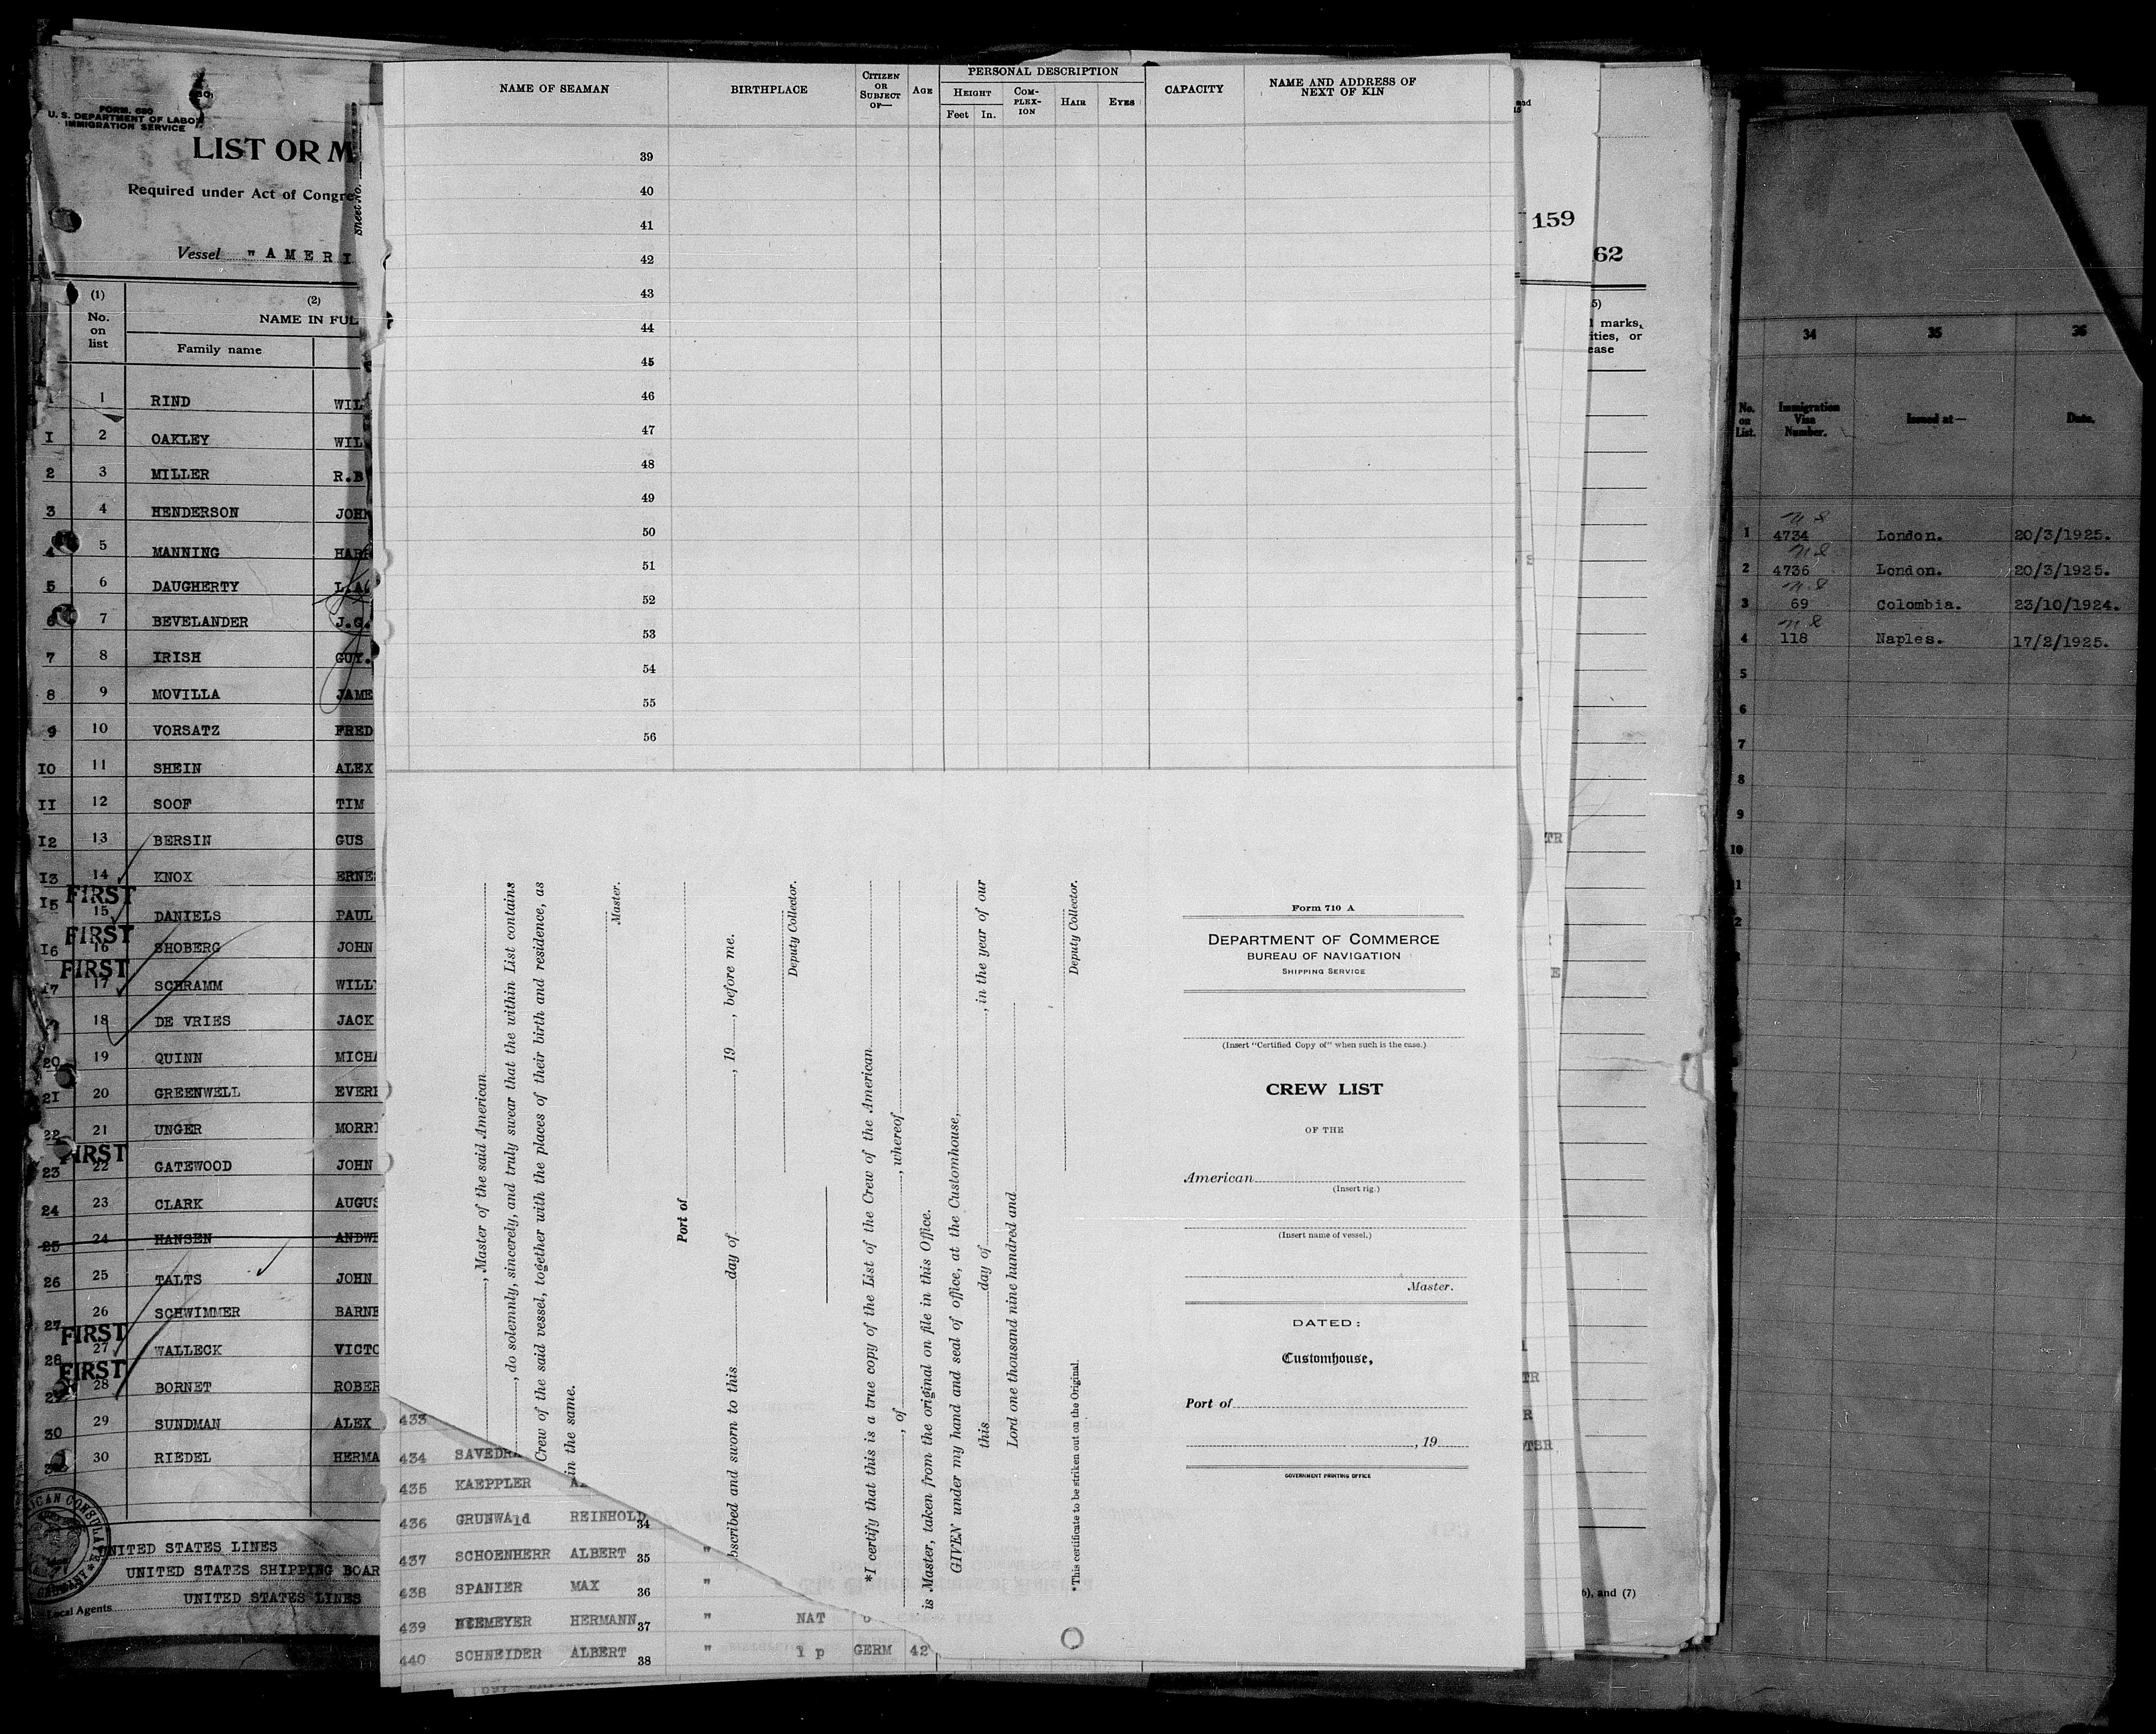 FORM. 680
U. S. DEPARTMENT OF LABOR
IMMIGRATION SERVICE
LIST OR M
Required under Act of Congre
Sheet No.
Vessel "AMERI
(1) (2)
No. on list
NAME IN FUL
Family name
1 1 RIND WIL
I 2 OAKLEY WIL
2 3 MILLER R.B
3 4 HENDERSON JOHN
4 5 MANNING HARR
5 6 DAUGHERTY L.A.
6 7 BEVELANDER J.G.
7 8 IRISH GUY.
8 9 MOVILLA JAME
9 10 VORSATZ FRED
IO 11 SHEIN ALEX
II 12 SOOF TIM
I2 13 BERSIN GUS
I3 14 KNOX ERNES
FIRST
I5 15 DANIELS PAUL
FIRST
I6 16 SHOBERG JOHN
FIRST
I7 17 SCHRAMM WILL
18 DE VRIES JACK
20 19 QUINN MICHA
21 20 GREENWELL EVER
22 21 UNGER MORRI
FIRST
23 22 GATEWOOD JOHN
24 23 CLARK AUGUS
25 24 HANSEN ANDWE
26 25 TALTS JOHN
27 26 SCHWIMMER BARNE
FIRST
28 27 WALLECK VICTO
FIRST
29 28 BORNET ROBER
30 29 SUNDMAN ALEX
30 RIEDEL HERMA
ICAN CONSULATE
GERMANY
UNITED STATES LINES
UNITED STATES SHIPPING BOAR
Local Agents UNITED STATES LINES
NAME OF SEAMAN
BIRTHPLACE
CITIZEN OR SUBJECT OF—
AGE
PERSONAL DESCRIPTION
HEIGHT
Feet In.
COM-PLEX-ION
HAIR
EYES
CAPACITY
NAME AND ADDRESS OF NEXT OF KIN
39
40
41
42
43
44
45
46
47
48
49
50
51
52
53
54
55
56
, Master of the said American
, do solemnly, sincerely, and truly swear that the within List contains
Crew of the said vessel, together with the places of their birth and residence, as
in the same.
Master.
Port of
bscribed and sworn to this day of , 19 , before me.
Deputy Collector.
*I certify that this is a true copy of the List of the Crew of the American
, of , whereof
is Master, taken from the original on file in this Office.
GIVEN under my hand and seal of office, at the Customhouse,
this day of , in the year of our
Lord one thousand nine hundred and
Deputy Collector.
*This certificate to be striken out on the Original.
Form 710 A
DEPARTMENT OF COMMERCE
BUREAU OF NAVIGATION
SHIPPING SERVICE
(Insert "Certified Copy of" when such is the case.)
CREW LIST
OF THE
American
(Insert rig.)
(Insert name of vessel.)
Master.
DATED:
Customhouse,
Port of
, 19
GOVERNMENT PRINTING OFFICE
433
434 SAVEDR
435 KAEPPLER
436 GRUNWAld REINHOLD 34
437 SCHOENHERR ALBERT 35 "
438 SPANIER MAX 36 "
439 NIEMEYER HERMANN 37 " NAT
440 SCHNEIDER ALBERT 38 " 1 p GERM 42
and
159
62
5)
l marks,
ities, or
ease
TR
E
TR
R
TSR
6), and (7)
34 35 36
No. on List.
Immigration Visa Number.
Issued at—
Date.
1 4734 London. 20/3/1925.
2 4736 London. 20/3/1925.
3 69 Colombia. 23/10/1924.
4 118 Naples. 17/2/1925.
5
6
7
8
9
10
1
2